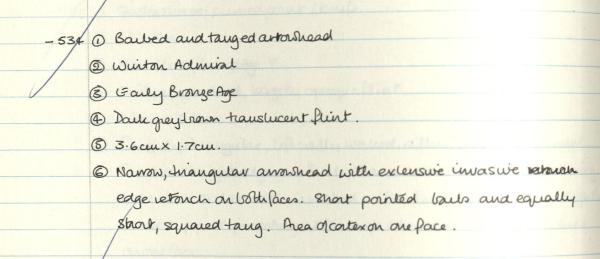 - 534 ① Barbed and tanged arrowhead
② Winton Admiral
③ Early Bronze Age
④ Dark grey brown translucent flint.
⑤ 3.6cm x 1.7cm.
⑥ Narrow, triangular arrowhead with extensive invasive
edge retouch on both faces. Short pointed barbs and equally
short, squared tang. Area of cortex on one face.